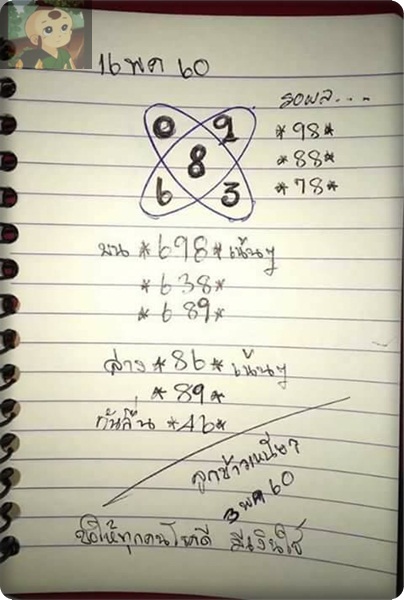 16 พค 60
รอผล...
0 9
8
6 3
*98*
*88*
*78*
บน *698* เน้นๆ
*638*
*689*
ล่าง *86* เน้นๆ
*89*
กันลื่น *46*
ลูกข้าวเหนียว
3 พค 60
ขอให้ทุกคนโชคดี มีเงินใช้